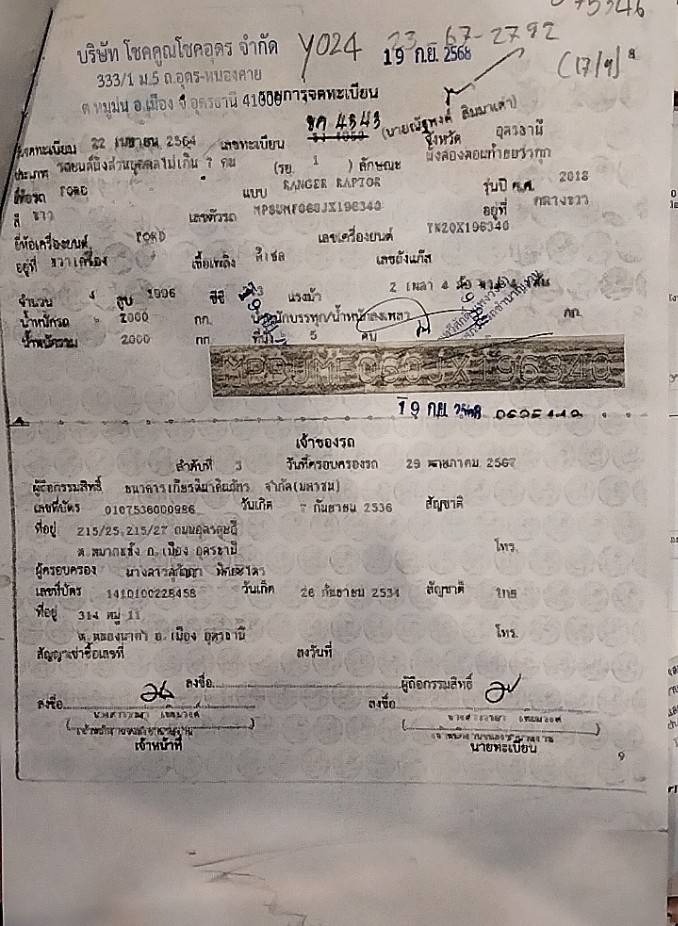 75346
บริษัท โชคคูณโชคอุดร จำกัด Y024 23-67-2792
19 ก.ย. 2568 (17/9)
333/1 ม.5 ถ.อุดร-หนองคาย
ต.หมูม่น อ.เมือง จ.อุดรธานี 41000 รายการจดทะเบียน
วันจดทะเบียน 22 เมษายน 2564 เลขทะเบียน ขค 4343 จังหวัด อุดรธานี
ประเภท รถยนต์นั่งส่วนบุคคลไม่เกิน 7 คน (รย. 1 ) ลักษณะ นั่งสองตอนท้ายบรรทุก
ยี่ห้อรถ FORD แบบ RANGER RAPTOR รุ่นปี ค.ศ. 2018
สี ขาว เลขตัวรถ MPBUMF060JX196340 อยู่ที่ กลางขวา
ยี่ห้อเครื่องยนต์ FORD เลขเครื่องยนต์ YN20X196340
อยู่ที่ ขวาเครื่อง เชื้อเพลิง ดีเซล เลขถังแก๊ส
จำนวน 4 สูบ 1996 ซีซี 213 แรงม้า 2 เพลา 4 ล้อ ยาง 4 เส้น
น้ำหนักรถ 2000 กก. น้ำหนักบรรทุก/น้ำหนักลงเพลา กก.
น้ำหนักรวม 2000 กก. ที่นั่ง 5 คน
MPBUMF060JX196340
19 ก.ย. 2568
เจ้าของรถ
ลำดับที่ 3 วันที่ครอบครองรถ 29 พฤษภาคม 2567
ผู้ถือกรรมสิทธิ์ ธนาคารเกียรตินาคินภัทร จำกัด(มหาชน)
เลขที่บัตร 0107536000986 วันเกิด 7 กันยายน 2536 สัญชาติ
ที่อยู่ 215/25,215/27 ถนนอุดรดุษฎี
ต.หมากแข้ง อ.เมือง อุดรธานี โทร.
ผู้ครอบครอง
เลขที่บัตร 1410100228458 วันเกิด 26 กันยายน 2534 สัญชาติ ไทย
ที่อยู่ 314 หมู่ 11
ต.หนองนาคำ อ.เมือง อุดรธานี โทร.
สัญญาเช่าซื้อเลขที่ ลงวันที่
ลงชื่อ ผู้ถือกรรมสิทธิ์
ลงชื่อ ลงชื่อ
เจ้าหน้าที่ นายทะเบียน
9